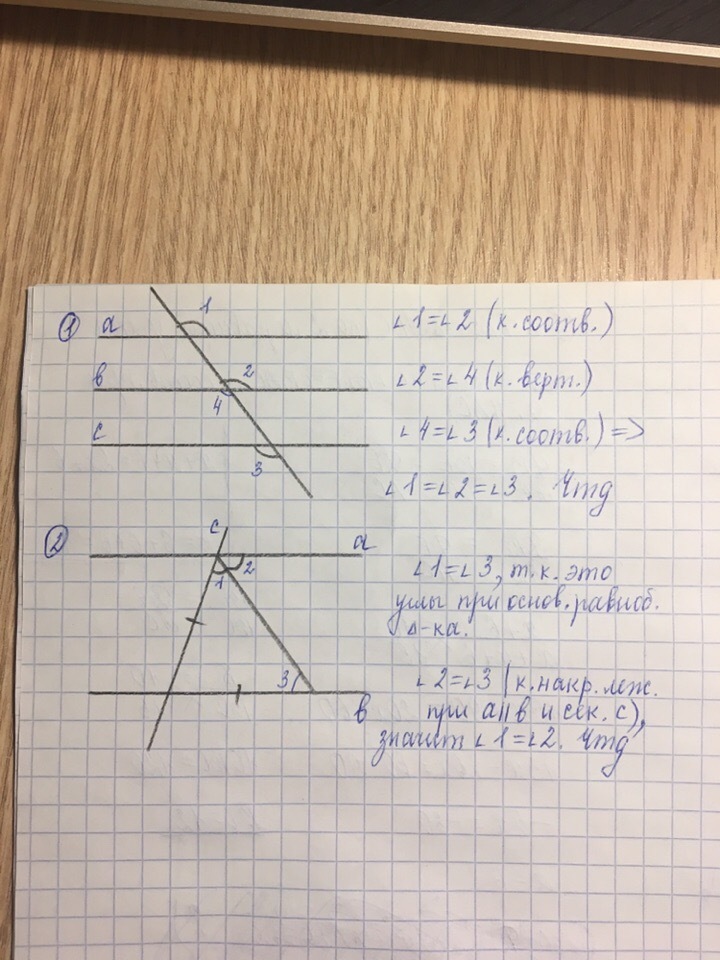 1 a 1 ∟1=∟2 (к. соотв.)
в 2 ∟2=∟4 (к. верт.)
4
с ∟4=∟3 (к. соотв.) =>
3
∟1=∟2=∟3. Чтд
2 с a
1 2 ∟1=∟3, т.к. это
углы при основ. равноб.
Δ-ка.
3 ∟2=∟3 (к. накр. леж.
в при a||в и сек. с),
значит ∟1=∟2. Чтд